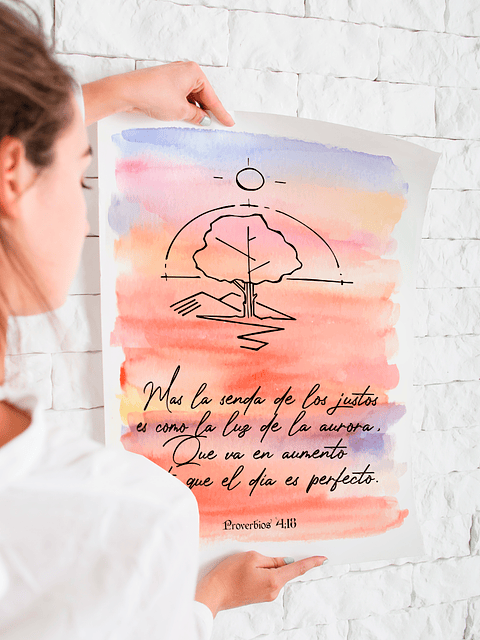 Mas la senda de los justos
es como la luz de la aurora,
Que va en aumento
que el día es perfecto.
Proverbios 4:18